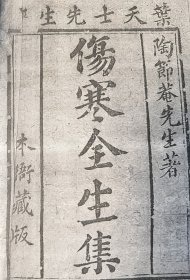 葉天士先生
陶節菴先生著
傷寒全生集
本衙藏版